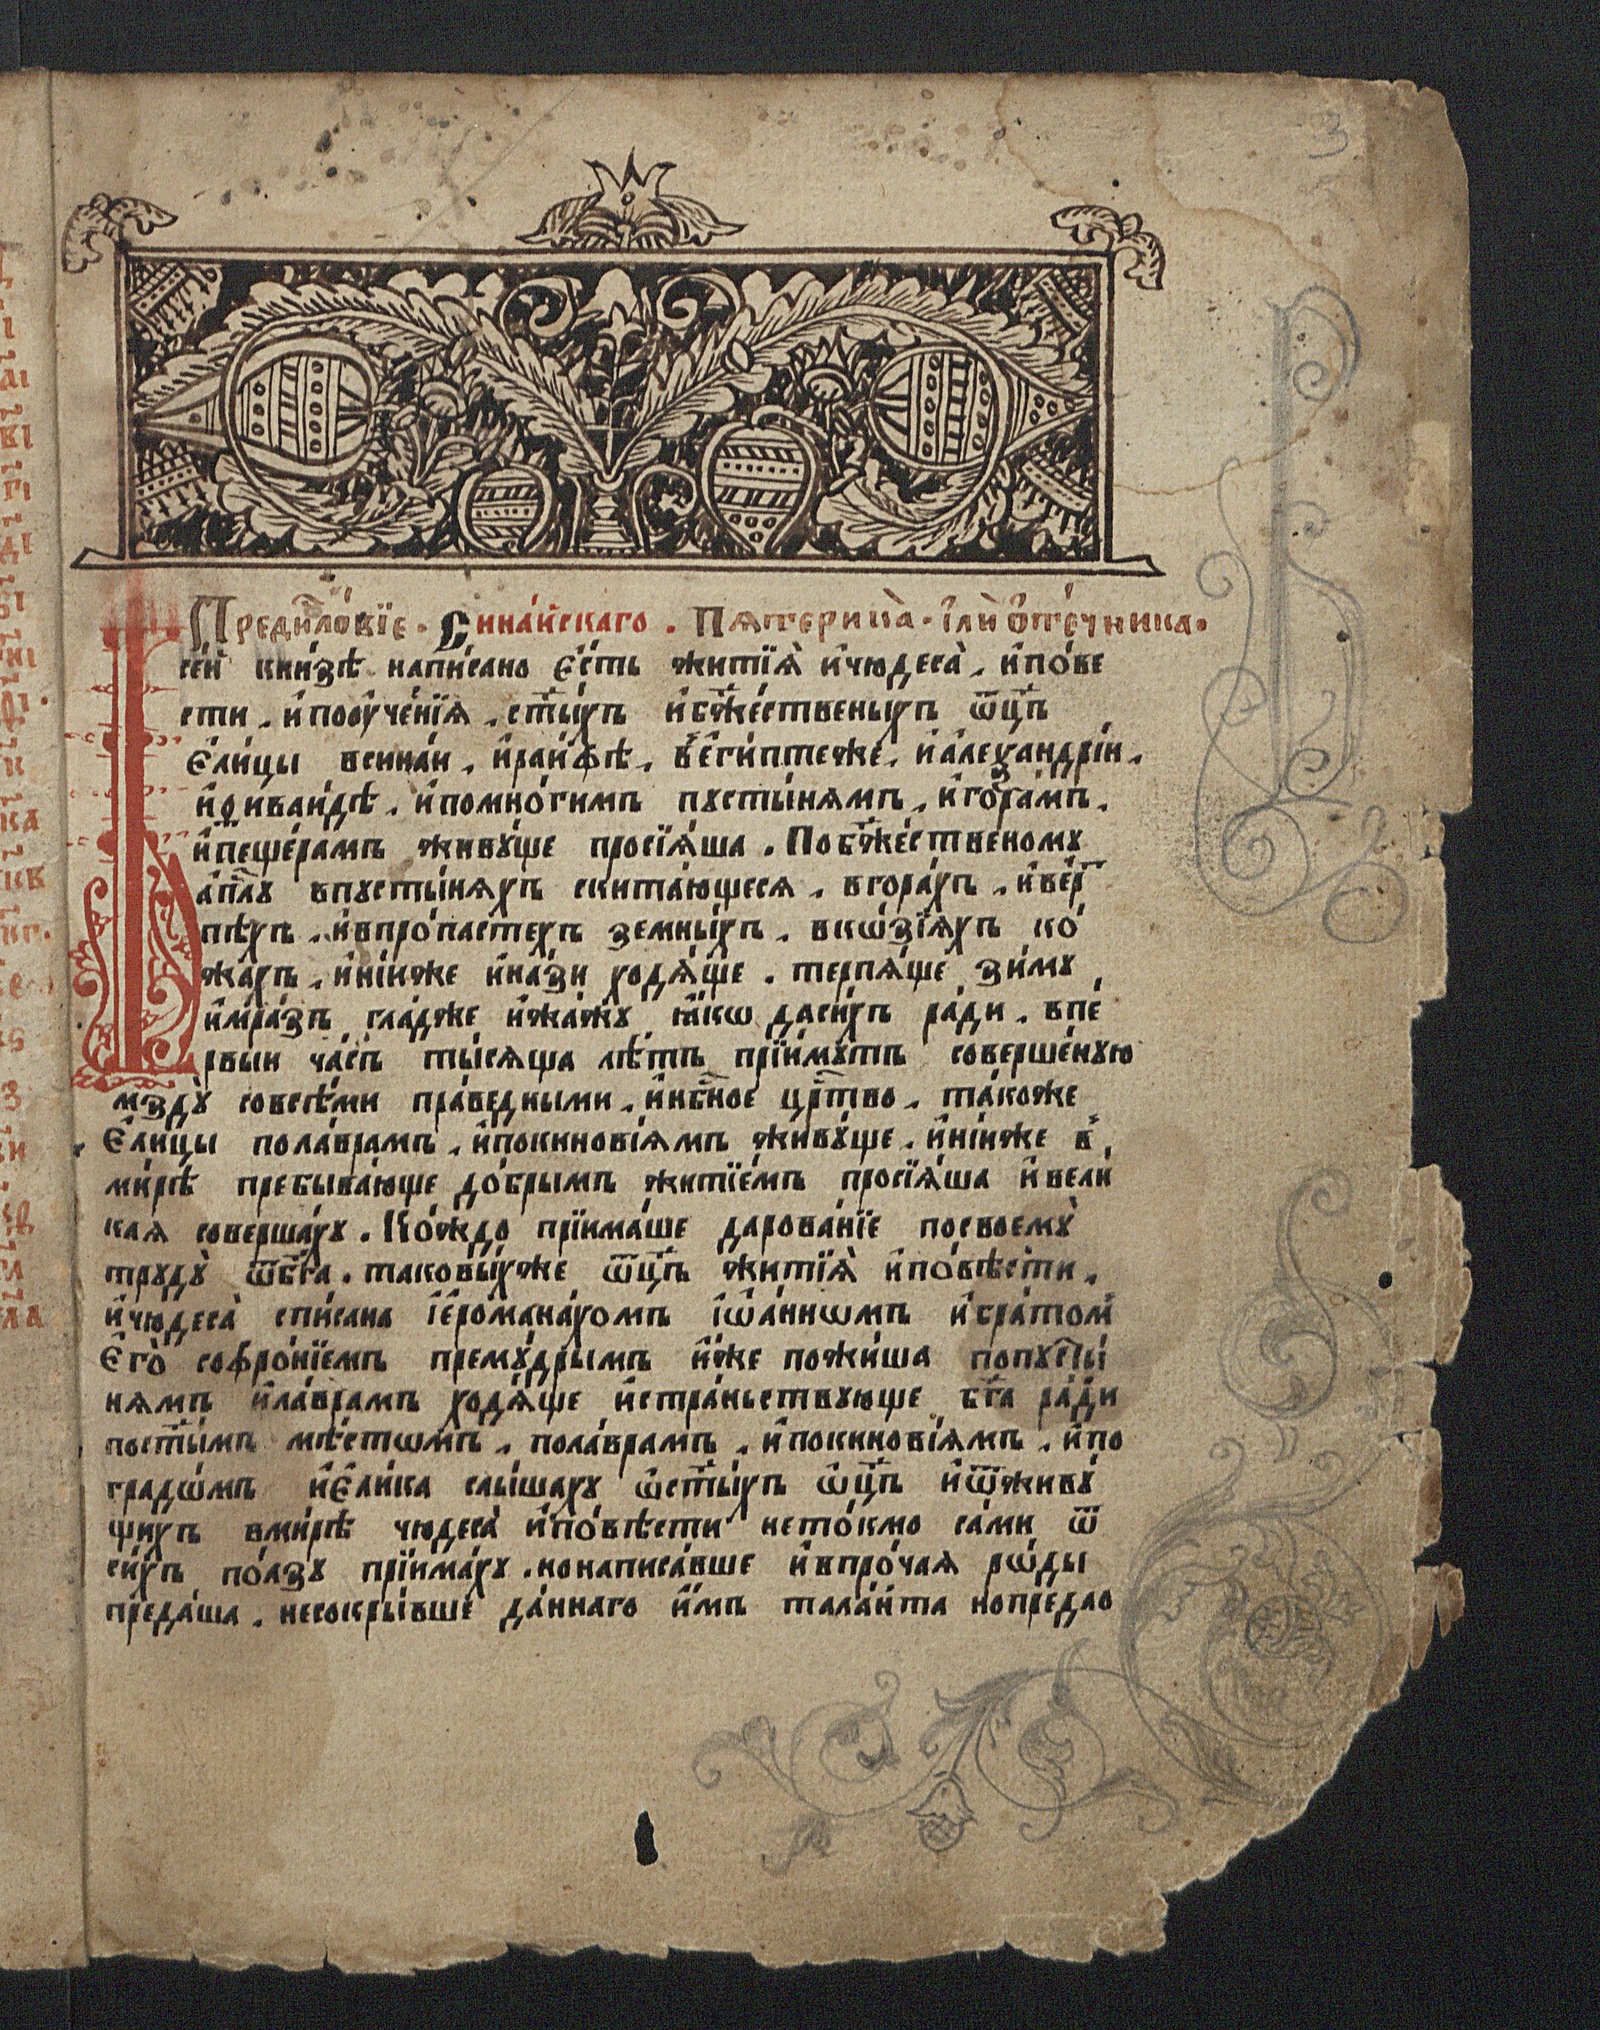 3
Предисло́вїе . Сина́йскаго . Пате́рика̀ . і҆лѝ ѻ҆те́чника .
В се́й кни́зѣ напи́сано є҆́сть житїѧ̀ и҆чюдеса̀ . и҆по́ве
сти . и҆пооуче́нїѧ . ст҃ы́хъ и҆бж҃е́ственыхъ ѿц҃ъ
є҆ли́цы всина́и . и҆раи́ѳѣ . в є҆ги́птеже . и҆а҆леѯандрі́и .
и҆ѳиваи́дѣ . и҆помно́гимъ пꙋсты́нѧмъ . и҆гора́мъ .
и҆пеще́рамъ живꙋ́ще просїѧ́ша . Побж҃е́ственомꙋ
а҆п҃лꙋ впꙋсты́нѧхъ скита́ющесѧ . вгора́хъ . и҆ве́р
пѣхъ . и҆впро́пастехъ земны́хъ . вкѡ́зїѧхъ ко́
жахъ . и҆ні́иже и҆на́зи ходѧ́ще . терпѧ́ще зи́мꙋ
и҆мра́зъ гла́дже и҆жа́жꙋ ꙗ҆́кѡ даси́хъ ра́ди . впе́
рвыи ча́съ ты́сѧща лѣ́тъ прїи́мꙋтъ соверше́нꙋю
мздꙋ̀ совсѣ́ми пра́ведными . и҆нб҃ное црⷭ҇тво . та́коже
є҆ли́цы пола́врамъ . и҆покинові́ѧмъ живꙋ́ще . и҆ні́иже в
ми́рѣ пребыва́юще до́брымъ житїе́мъ просїѧ́ша и҆вели́
каѧ соверша́хꙋ . Ко́ждо прїима́ше дарова́нїе посвоемꙋ̀
трꙋдꙋ̀ ѿбг҃а . таковы́хже ѿц҃ъ житїѧ̀ и҆по́вѣсти .
и҆чюдеса̀ спи́сана і҆ерома́нахомъ і҆ѡа́ннѡмъ и҆бра́том
є҆го̀ софро́нїемъ премꙋ́дрымъ и҆́же пожи́ша попꙋсты́
нѧмъ и҆ла́врамъ ходѧ́ще и҆стра́ньствꙋюще бг҃а ра́ди
пост҃ы́мъ мѣ́стѡмъ . пола́врамъ . и҆покинові́ѧмъ . и҆по
градѡ́мъ и҆є҆ли́ка слы́шахꙋ ѡ҆ст҃ы́хъ ѡ҆ц҃ъ и҆ѿживꙋ́
щихъ вми́рѣ чюдеса̀ и҆по́вѣсти нето́кмо са́ми ѿ
си́хъ по́лзꙋ прїима́хꙋ . нонаписа́вше и҆впро́чаѧ рѡ́ды
преда́ша . несокры́вше да́ннаго и҆́мъ тала́нта нопре́дао